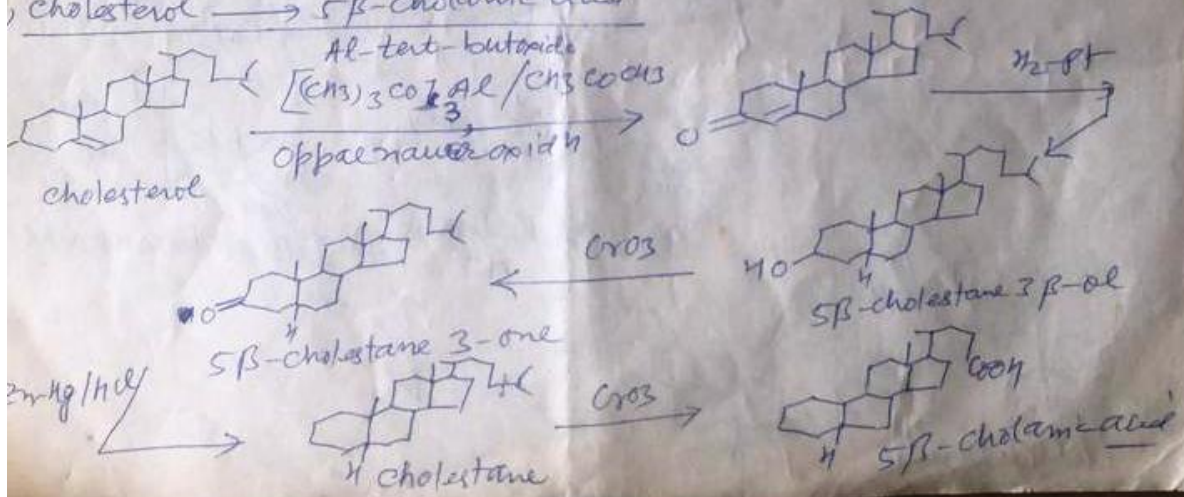 ) Cholesterol → 5β-Cholanic acid
Al-tert-butoxide
[(CH3)3CO]3Al/CH3COCH3
oppaenauer oxidn
cholesterol
O
H2-Pt
HO
H
5β-cholestane 3β-ol
CrO3
O
H
5β-cholestane 3-one
Zn-Hg/HCl
H
cholestane
CrO3
COOH
H
5β-cholanic acid